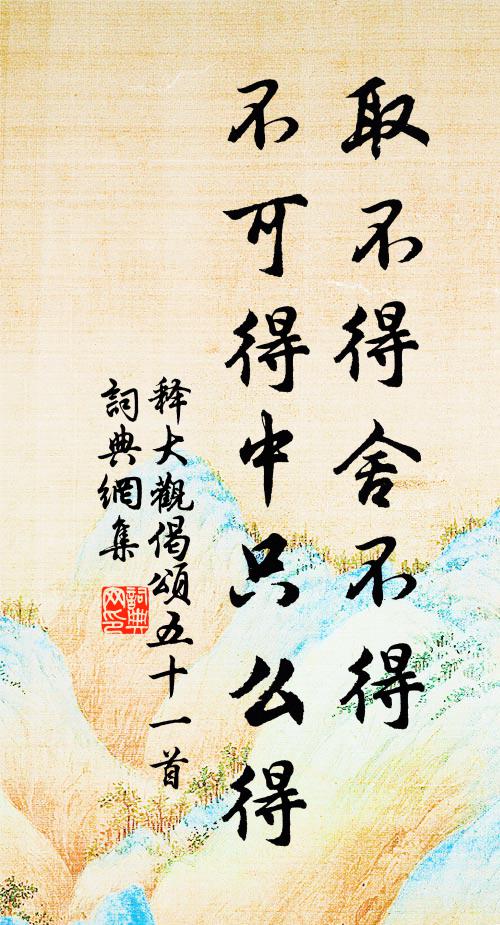 取不得舍不得
不可得中只么得
释大觀偈頌五十一首
詞典網集
詞典网印